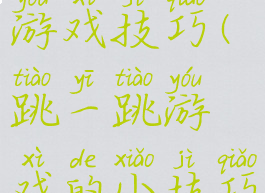 yóu xì jì qiǎo
游戏技巧(
tiào yī tiào yóu
跳一跳游
xì de xiǎo jì qiǎo
戏的小技巧